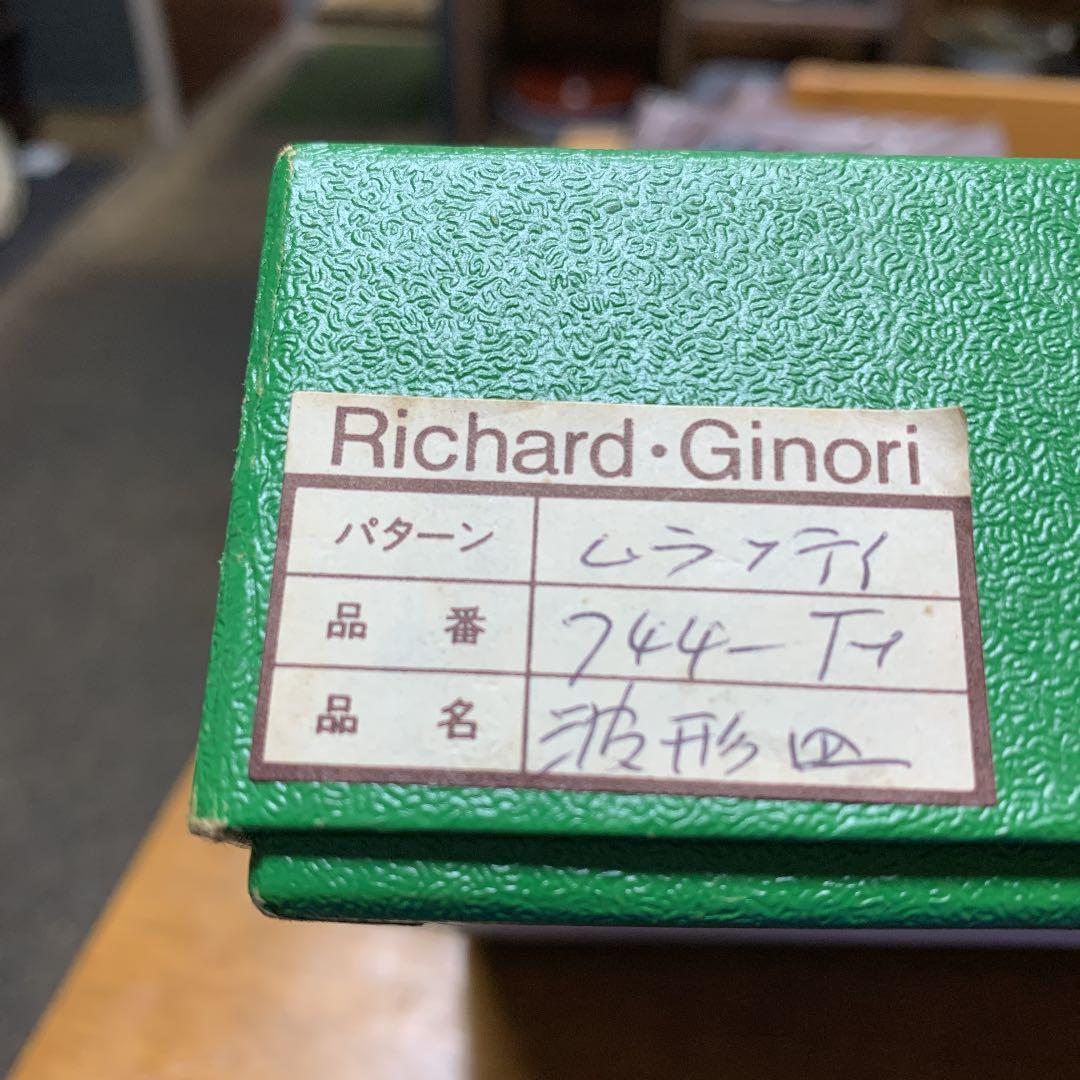 Richard・Ginori
パターン ムランティ
品番 744-Ti
品名 波形皿